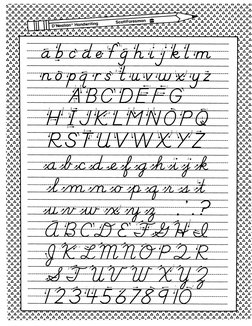 D'Nealian® Handwriting ScottForesman
a b c d e f g h i j k l m
n o p q r s t u v w x y z
A B C D E F G
H I J K L M N O P Q
R S T U V W X Y Z
a b c d e f g h i j k
l m n o p q r s t
u v w x y z . ' , ?
A B C D E F G H I
J K L M N O P Q R
S T U V W X Y Z
1 2 3 4 5 6 7 8 9 10